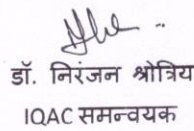 डॉ. निरंजन श्रोत्रिय
IQAC समन्वयक